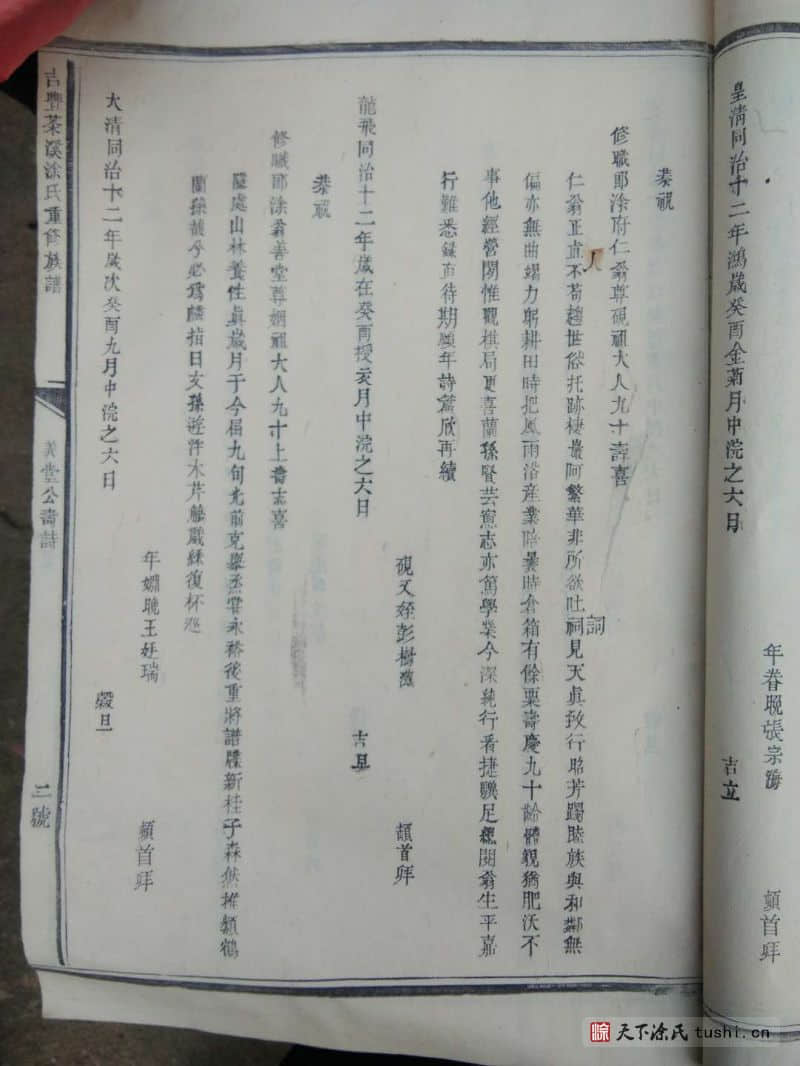 皇清同治十二年鴻歲癸酉金菊月中浣之六日
年眷晚張宗海
頓首拜
吉立
恭祝
修職郎涂府仁翁尊硯祖大人九十壽喜
仁翁正直不苟趨世俗托跡棲巖阿繁華非所欲吐祠見天真孜行昭芳躅睦族與和鄰無
人
詞
偏亦無曲竭力躬耕田時把風雨浴産業陪曩時倉箱有餘粟壽慶九十齡體貌猶肥沃不
事他經營閑惟觀棋局更喜蘭孫賢芸窻志亦篤學業今深純行看捷驥足總閱翁生平嘉
行難悉錄直待期頤年詩篇欣再續
龍飛同治十二年歲在癸酉授衣月中浣之六日
硯乂姪彭樹
頓首拜
吉旦
恭祝
修職郎涂翁善堂尊姻祖大人九十上壽志喜
隱處山林養性真歲月于今屆九旬光前克舉烝嘗永裕後重將譜牒新桂子森然推類鶴
蘭孫馥兮必爲麟指日文孫遊泮水芹觴戲綵復杯巡
大清同治十二年歲次癸酉九月中浣之六日
年姻晚王廷瑞
頓首拜
穀旦
吉豐茶溪涂氏重脩族譜
美堂公壽詩
二號
涂
天下涂氏 tushi.cn